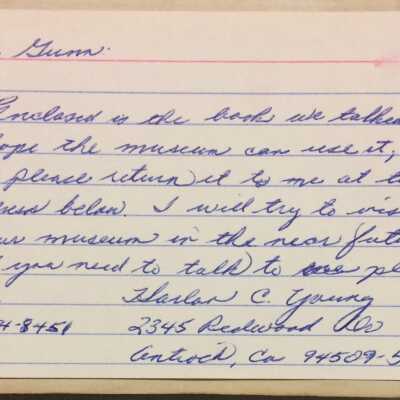 Gunn.
Enclosed is the book we talked
hope the museum can use it,
please return it to me at t
below. I will try to vis
ur museum in the near fut
you need to talk to me pl
Harlan C. Young
4-8451 2345 Redwood Dr
Antioch, Ca 94509-5